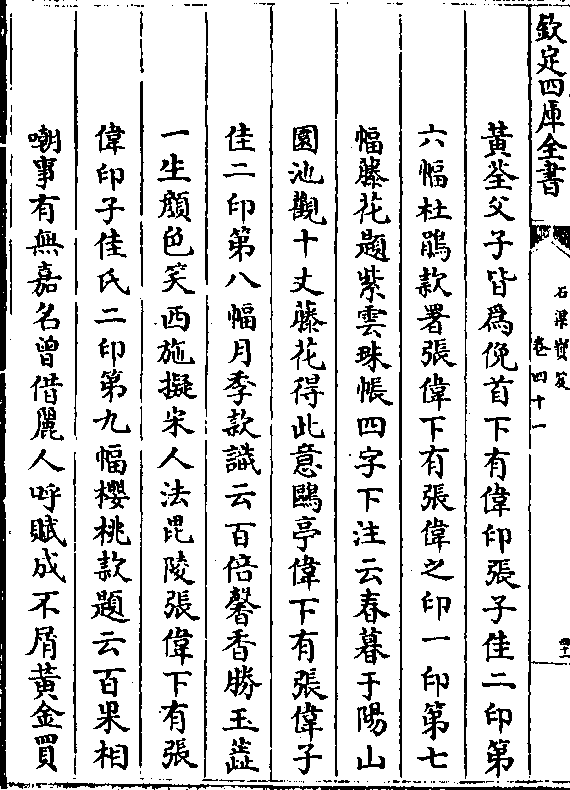 欽定四庫全書
石渠寶笈
卷四十一
黃荃父子皆爲俛首下有偉印張子佳二印第
六幅杜鵑款署張偉下有張偉之印一印第七
幅藤花題紫雲珠帳四字下注云春暮于陽山
園池觀十丈藤花得此意鷗亭偉下有張偉子
佳二印第八幅月季款識云百倍馨香勝玉蕋
一生顔色笑西施擬宋人法毘陵張偉下有張
偉印子佳氏二印第九幅櫻桃款題云百果相
嘲事有無嘉名曾借麗人呼賦成不屑黃金買